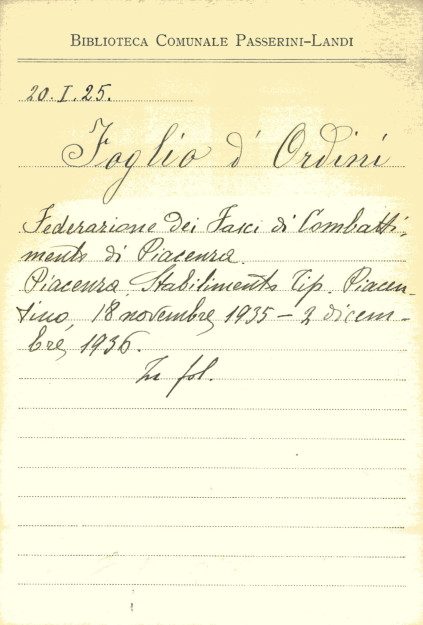 BIBLIOTECA COMUNALE PASSERINI-LANDI
20.I.25.
Foglio d'Ordini
Federazione dei Fasci di Combatti-
mento di Piacenza.
Piacenza, Stabilimento Tip. Piacen-
tino, 18 novembre 1935 - 2 dicem-
bre, 1936.
In fol.